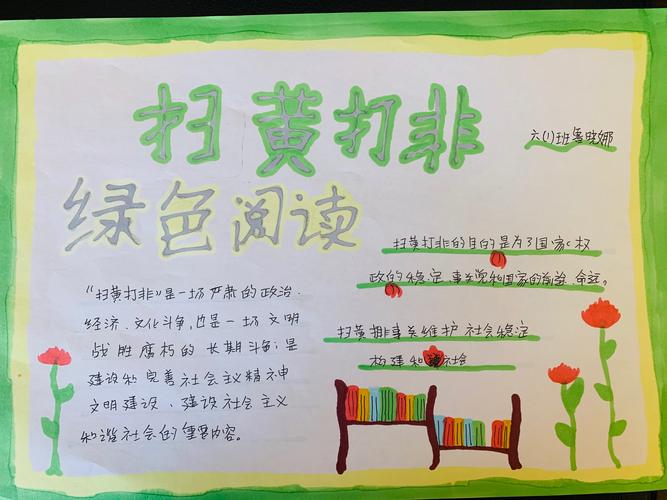 扫黄打非
六(1)班鲁晓娜
绿色阅读
"扫黄打非"是一场严肃的政治、
经济、文化斗争,也是一场文明
战胜腐朽的长期斗争;是
建设和完善社会主义精神
文明建设、建设社会主义
和谐社会的重要内容。
扫黄打非的目的是为了国家权
政的稳定,事关党和国家的前途、命运。
扫黄排事关维护社会稳定
构建和社会